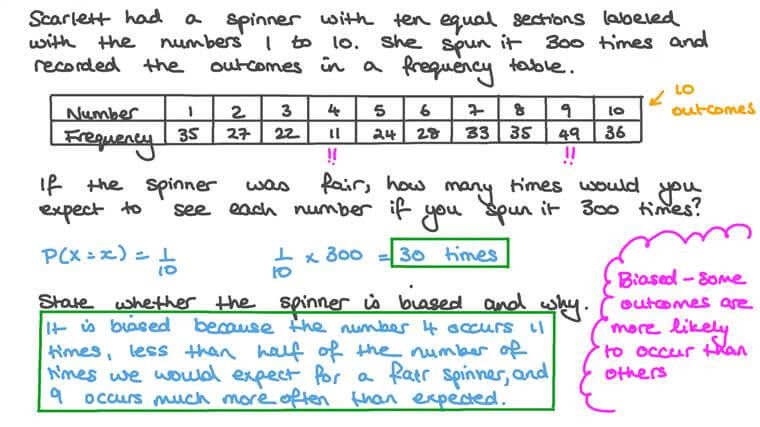 Scarlett had a spinner with ten equal sections labeled
with the numbers 1 to 10. She spun it 300 times and
recorded the outcomes in a frequency table.
Number 1 2 3 4 5 6 7 8 9 10
Frequency 35 27 22 11 24 28 33 35 49 36
10
outcomes
!! !!
If the spinner was fair, how many times would you
expect to see each number if you spun it 300 times?
P(X=x) = 1/10 1/10 × 300 = 30 times
State whether the spinner is biased and why.
It is biased because the number 4 occurs 11
times, less than half of the number of
times we would expect for a fair spinner, and
9 occurs much more often than expected.
Biased – some
outcomes are
more likely
to occur than
others